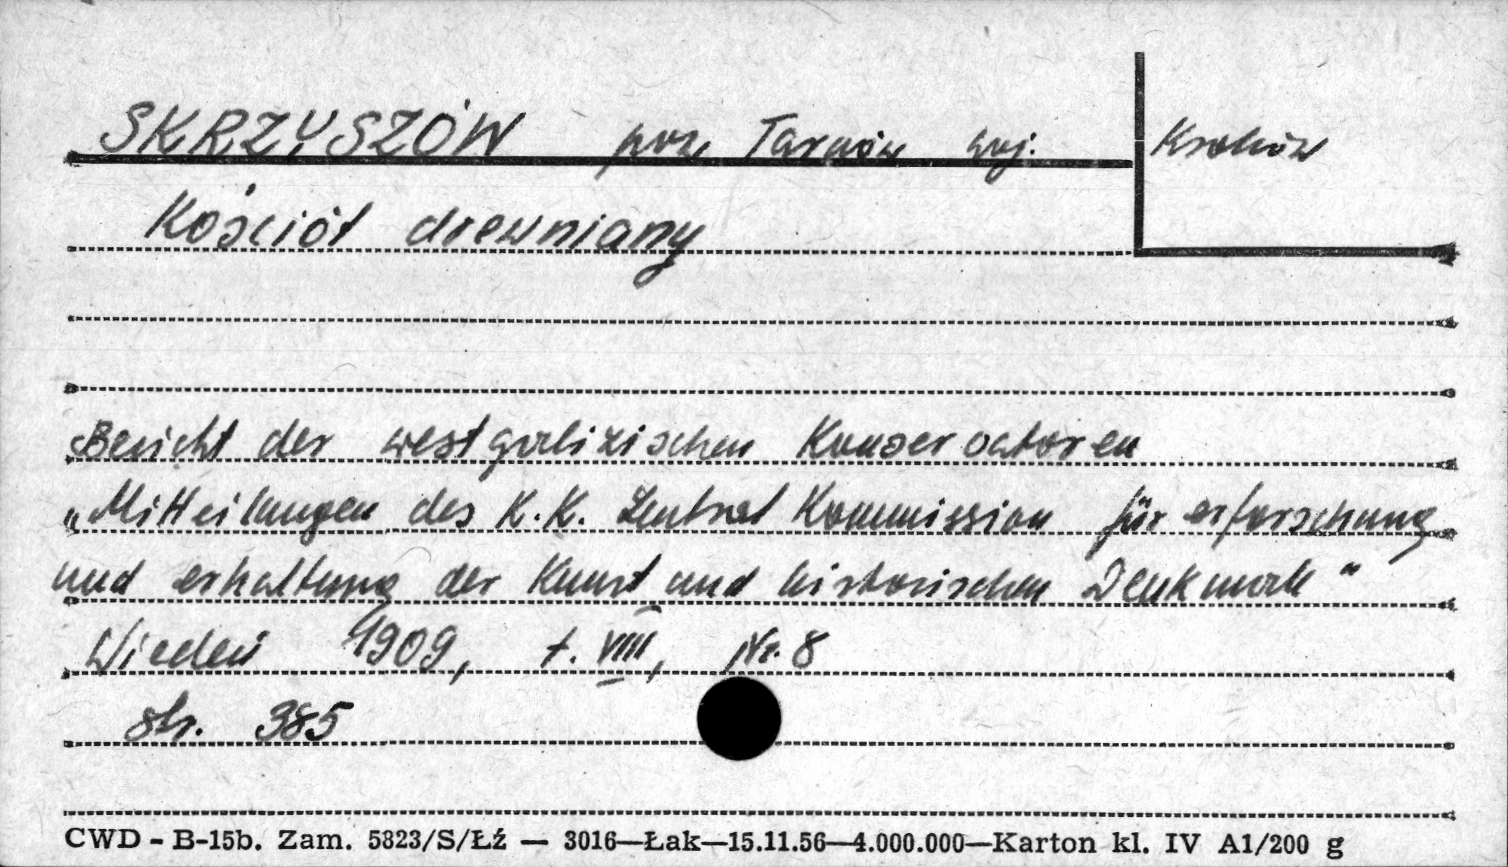 SKRZYSZÓW pow. Tarnów woj. Kraków
Kościół drewniany
Bericht der westgalizischen Konservatoren
„Mitteilungen des K.K. Zentral Kommission für erforschung
und erhaltung der Kunst und historischen Denkmale"
Wiedeń 1909, t. VIII, Nr. 8
str. 385
CWD - B-15b. Zam. 5823/S/Łź — 3016—Łak—15.11.56—4.000.000—Karton kl. IV A1/200 g